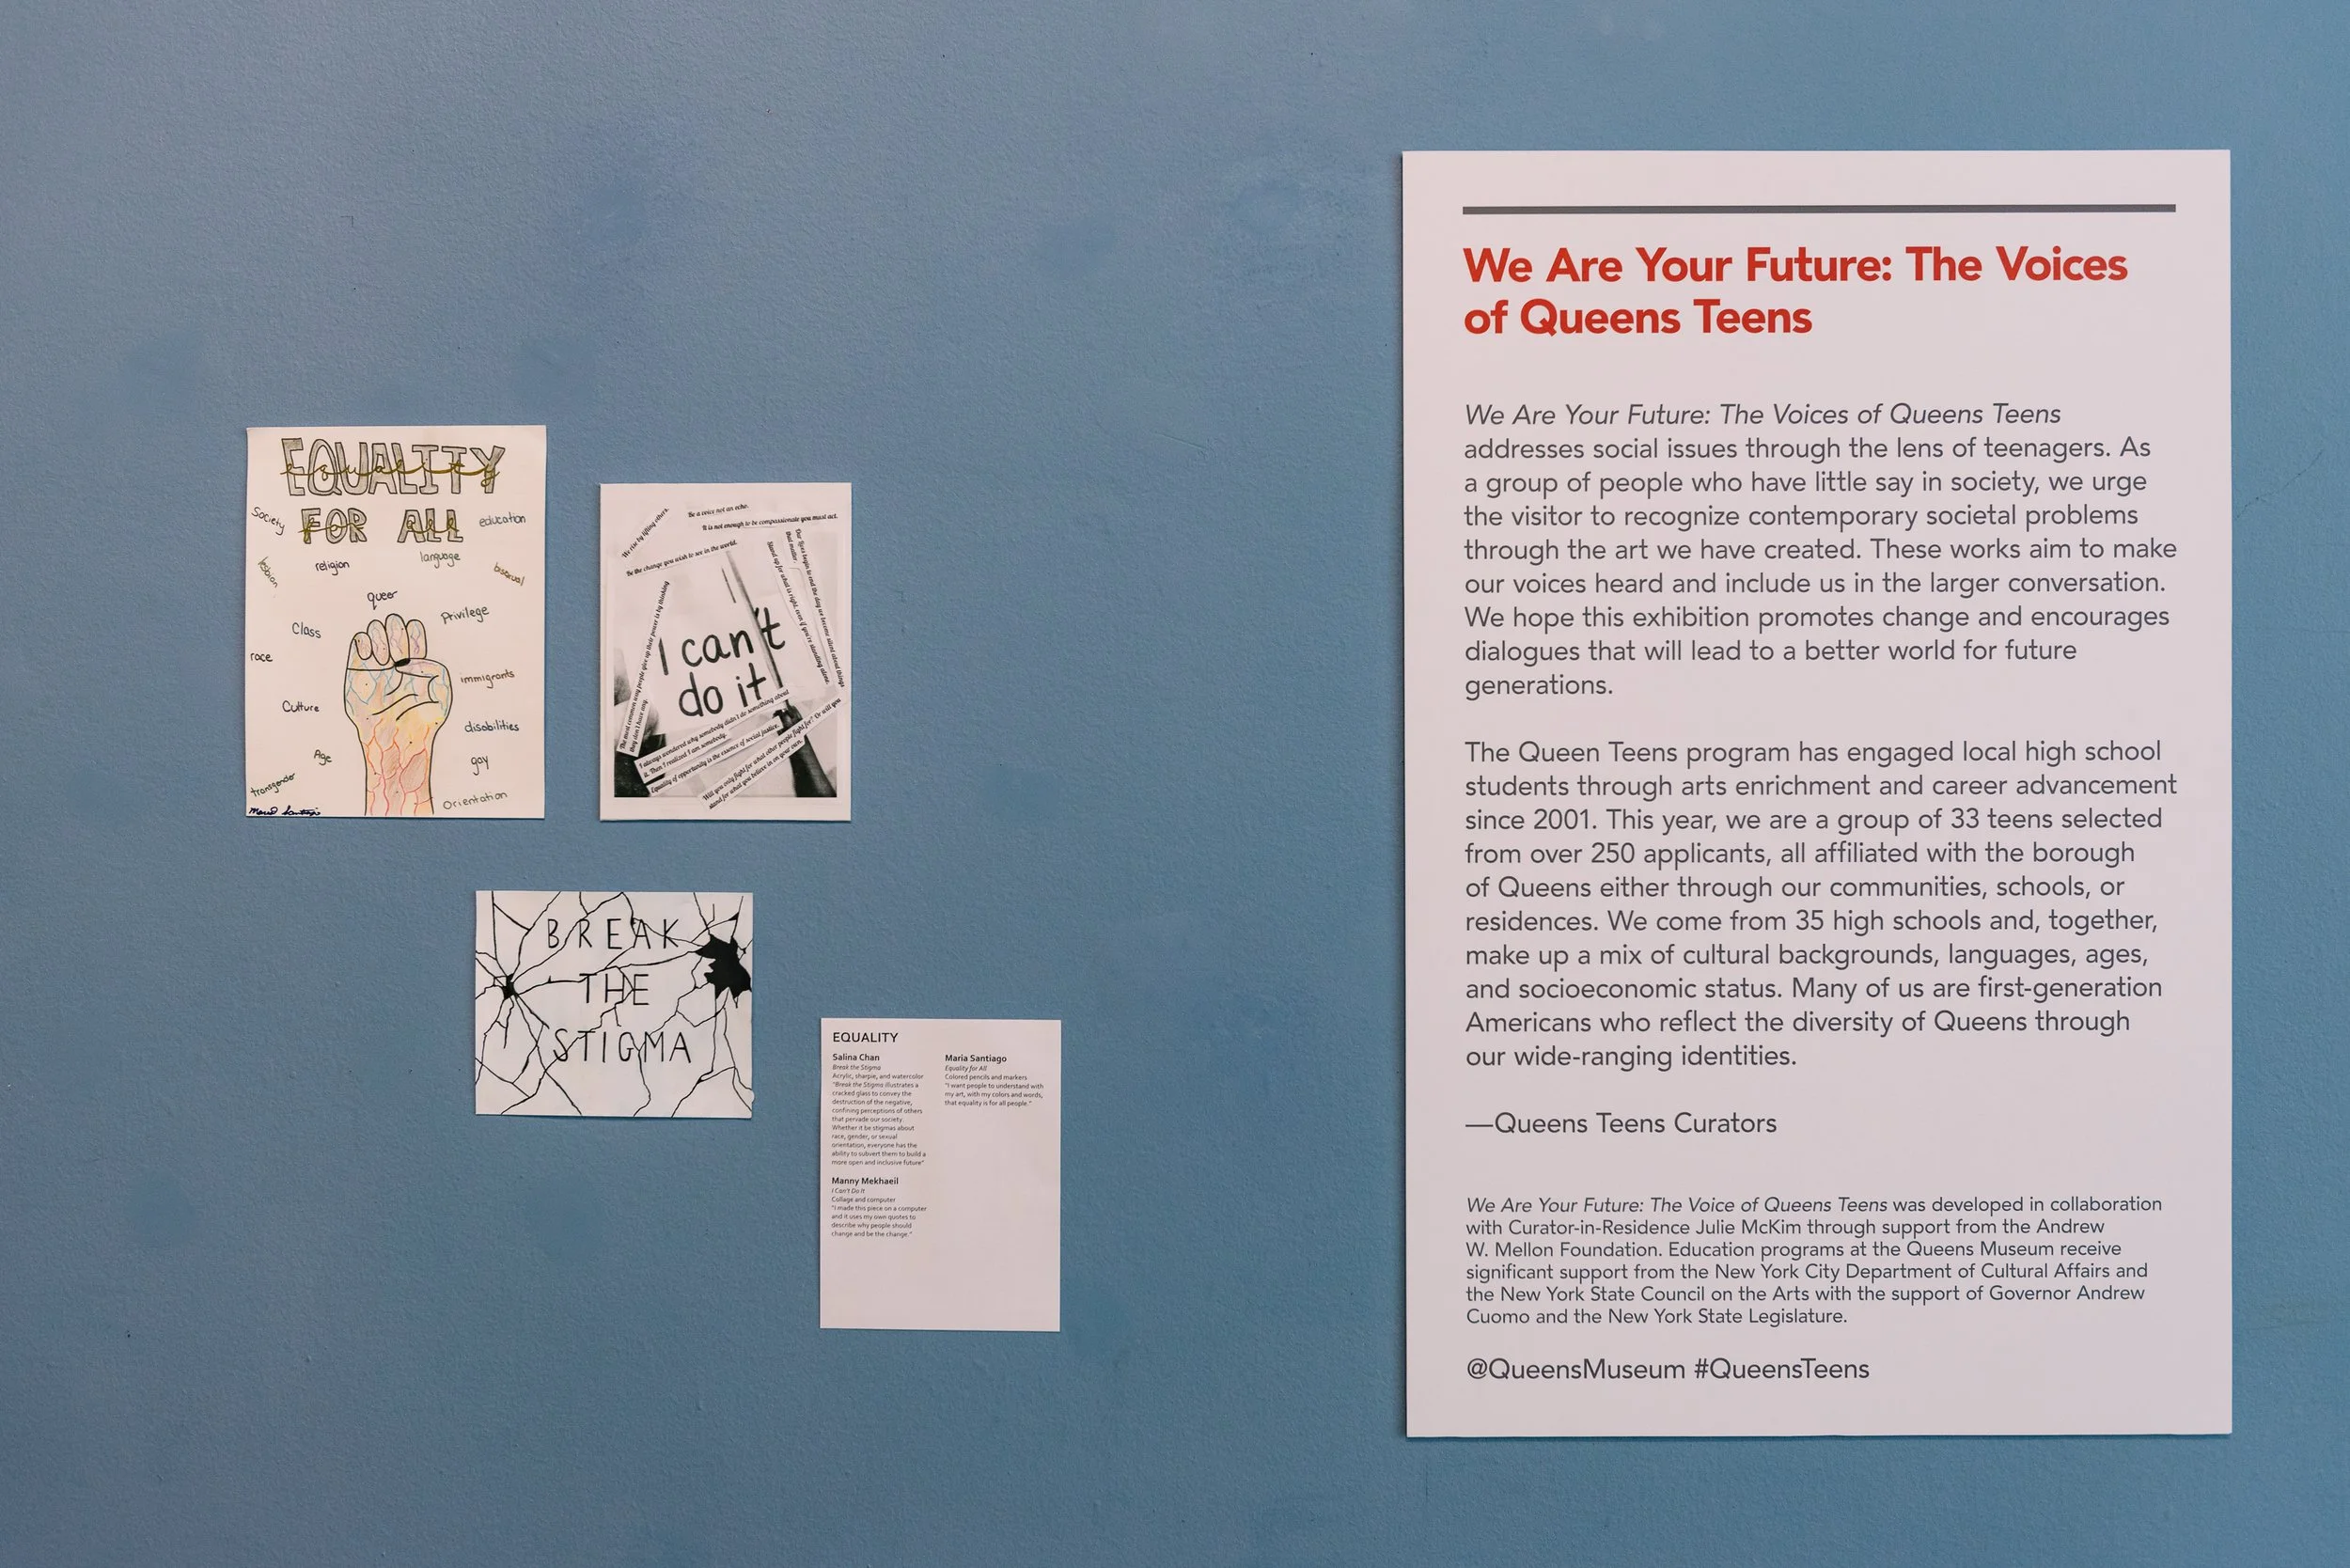 EQUALITY
equality
FOR ALL
Society
education
lesbian
religion
language
bisexual
queer
Privilege
Class
race
immigrants
Culture
disabilities
Age
gay
transgender
Orientation
We rise by lifting others.
Be a voice not an echo.
It is not enough to be compassionate you must act.
Be the change you wish to see in the world.
Our lives begin to end the day we become silent about things
that matter.
Stand up for what is right, even if you're standing alone.
The most common way people give up their power is by thinking
they don't have any.
I can't
do it!
I always wondered why somebody didn't do something about
it. Then I realized I am somebody.
Equality of opportunity is the essence of social justice.
Will you only fight for what other people fight for? Or will you
stand for what you believe in on your own.
BREAK
THE
STIGMA
EQUALITY
Salina Chan
Break the Stigma
Acrylic, sharpie, and watercolor
"Break the Stigma illustrates a
cracked glass to convey the
destruction of the negative,
confining perceptions of others
that pervade our society.
Whether it be stigmas about
race, gender, or sexual
orientation, everyone has the
ability to subvert them to build a
more open and inclusive future"
Manny Mekhaeil
I Can't Do It
Collage and computer
"I made this piece on a computer
and it uses my own quotes to
describe why people should
change and be the change."
Maria Santiago
Equality for All
Colored pencils and markers
"I want people to understand with
my art, with my colors and words,
that equality is for all people."
We Are Your Future: The Voices
of Queens Teens
We Are Your Future: The Voices of Queens Teens
addresses social issues through the lens of teenagers. As
a group of people who have little say in society, we urge
the visitor to recognize contemporary societal problems
through the art we have created. These works aim to make
our voices heard and include us in the larger conversation.
We hope this exhibition promotes change and encourages
dialogues that will lead to a better world for future
generations.
The Queen Teens program has engaged local high school
students through arts enrichment and career advancement
since 2001. This year, we are a group of 33 teens selected
from over 250 applicants, all affiliated with the borough
of Queens either through our communities, schools, or
residences. We come from 35 high schools and, together,
make up a mix of cultural backgrounds, languages, ages,
and socioeconomic status. Many of us are first-generation
Americans who reflect the diversity of Queens through
our wide-ranging identities.
—Queens Teens Curators
We Are Your Future: The Voice of Queens Teens was developed in collaboration
with Curator-in-Residence Julie McKim through support from the Andrew
W. Mellon Foundation. Education programs at the Queens Museum receive
significant support from the New York City Department of Cultural Affairs and
the New York State Council on the Arts with the support of Governor Andrew
Cuomo and the New York State Legislature.
@QueensMuseum #QueensTeens